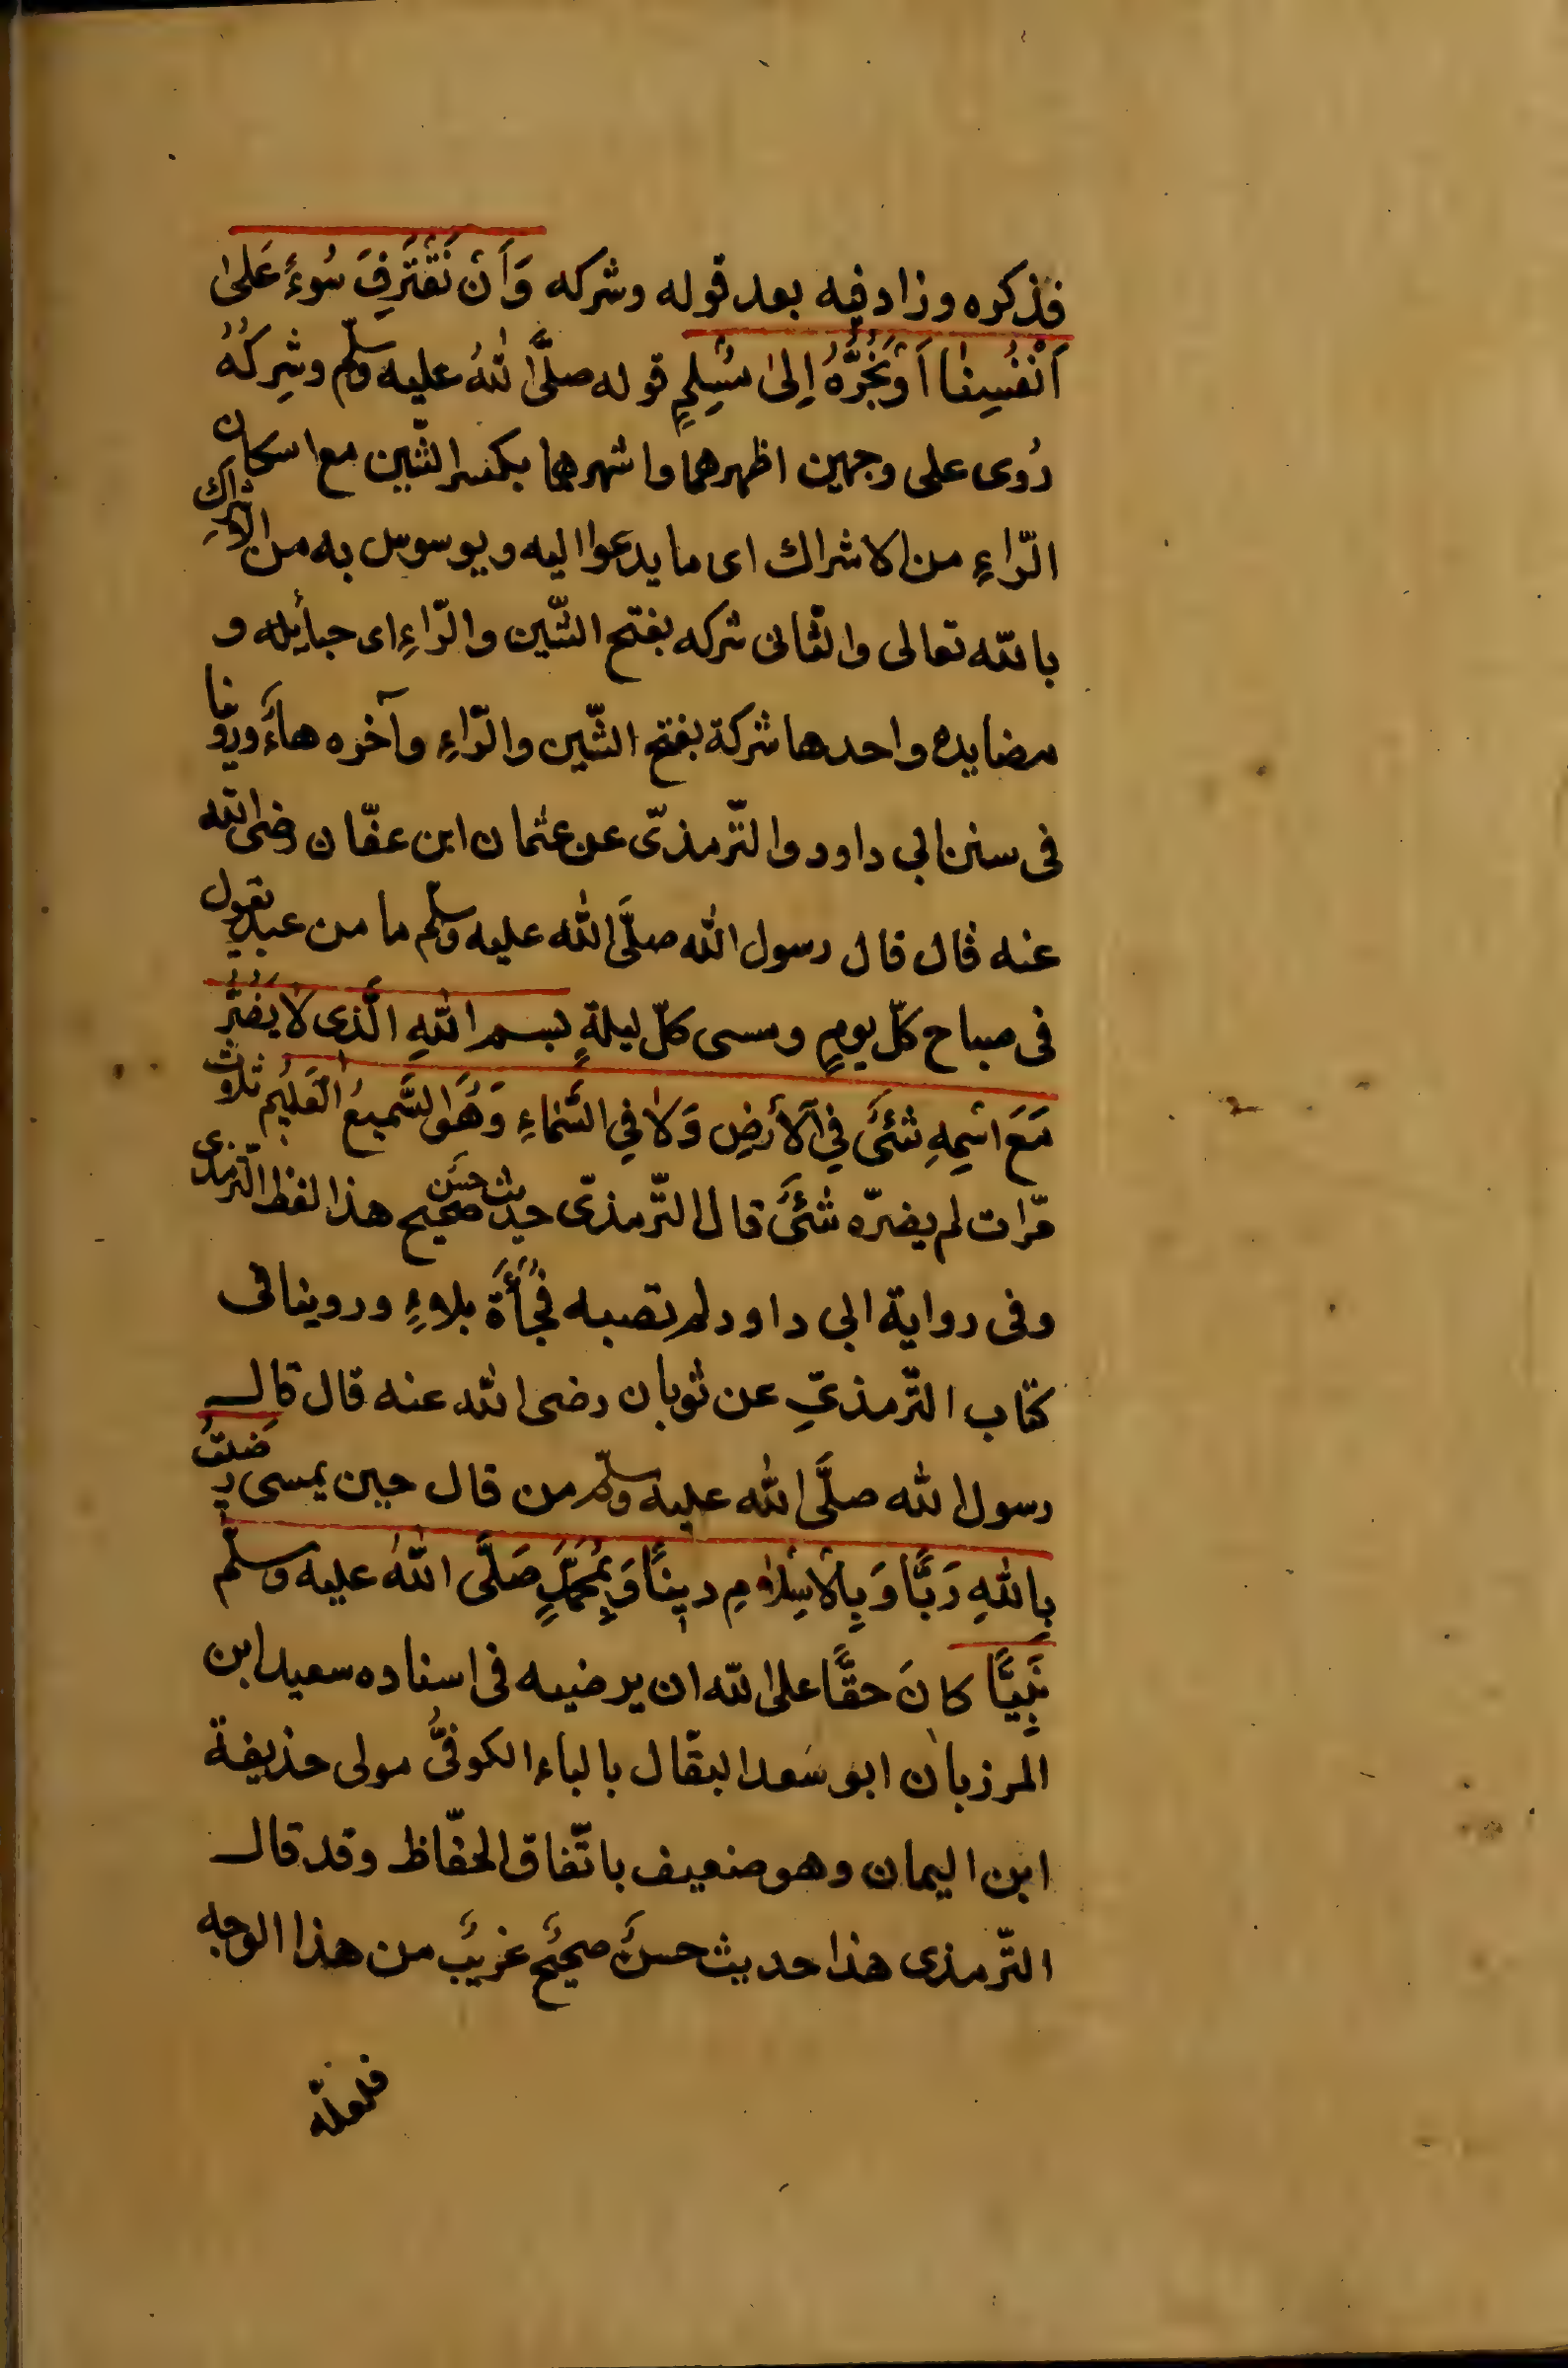 فذكره وزاد فيه بعد قوله وشركه وَاَنْ نَقْتَرِفَ سُوءً عَلىٰ
اَنْفُسِنٰا اَوْنَجُرَّهُ اِلىٰ مُسْلِمٍ قوله صلَّى اللهُ عليه وسلّم وشِركُهُ
رُوى على وجهين اظهرهما واشهرهما بكسر الشّين مع اسكان
الرّاءِ من الاشراك اى ما يدعوا اليه ويوسوس به من الاشراكِ
بالله تعالى والثّانى شركه بفتح الشّين والرّاءِ اى حبأيله و
مضايده واحدها شركة بفتح الشّين والرّاءِ وآخره هاءٌ وروّينا
فى سنن ابى داود والتّرمذىّ عن عثمان ابن عفّان رضى الله
عنه قال قال رسول الله صلَّى الله عليه وسلّم ما من عبدٍ يقول
فى صباح كلّ يومٍ ومسى كلّ ليلةٍ بسم اللهِ الَّذى لٰا يَضُرُّ
مَعَ اسْمِهِ شَئٌ فِي الْأَرْضِ وَلٰا فِي السَّمٰاءِ وَهُوَ السَّميعُ الْعَليُم ثلاث
مّرات لم يضرّه شئٌ قال التّرمذىّ حديث حسن صحيح هذا لفظ التّرمذى
وفى رواية ابى داود لم تصبه فُجْأَةُ بلاءٍ وروينا فى
كتاب التّرمذيّ عن ثوبان رضى الله عنه قال قال
رسول الله صلَّى الله عليه وسلّم من قال حين يمسى رَضيتُ
بِاللهِ رَبًّا وَبِالْاِسْلٰامِ دينًا وَبِمُحَمَّدٍ صَلَّى اللهُ عليه وسلّم
نَبِيًّا كانَ حقًّا على الله ان يرضيه فى اسناده سعيد ابن
المرزبان ابو سَعد البقّال بالباء الكوفىُّ مولى حذيفة
ابن اليمان وهو ضعيف باتّفاق الحفّاظ وقد قال
التّرمذى هذا حديث حسنٌ صحيحٌ غريبٌ من هذا الوجه
فلعلّه